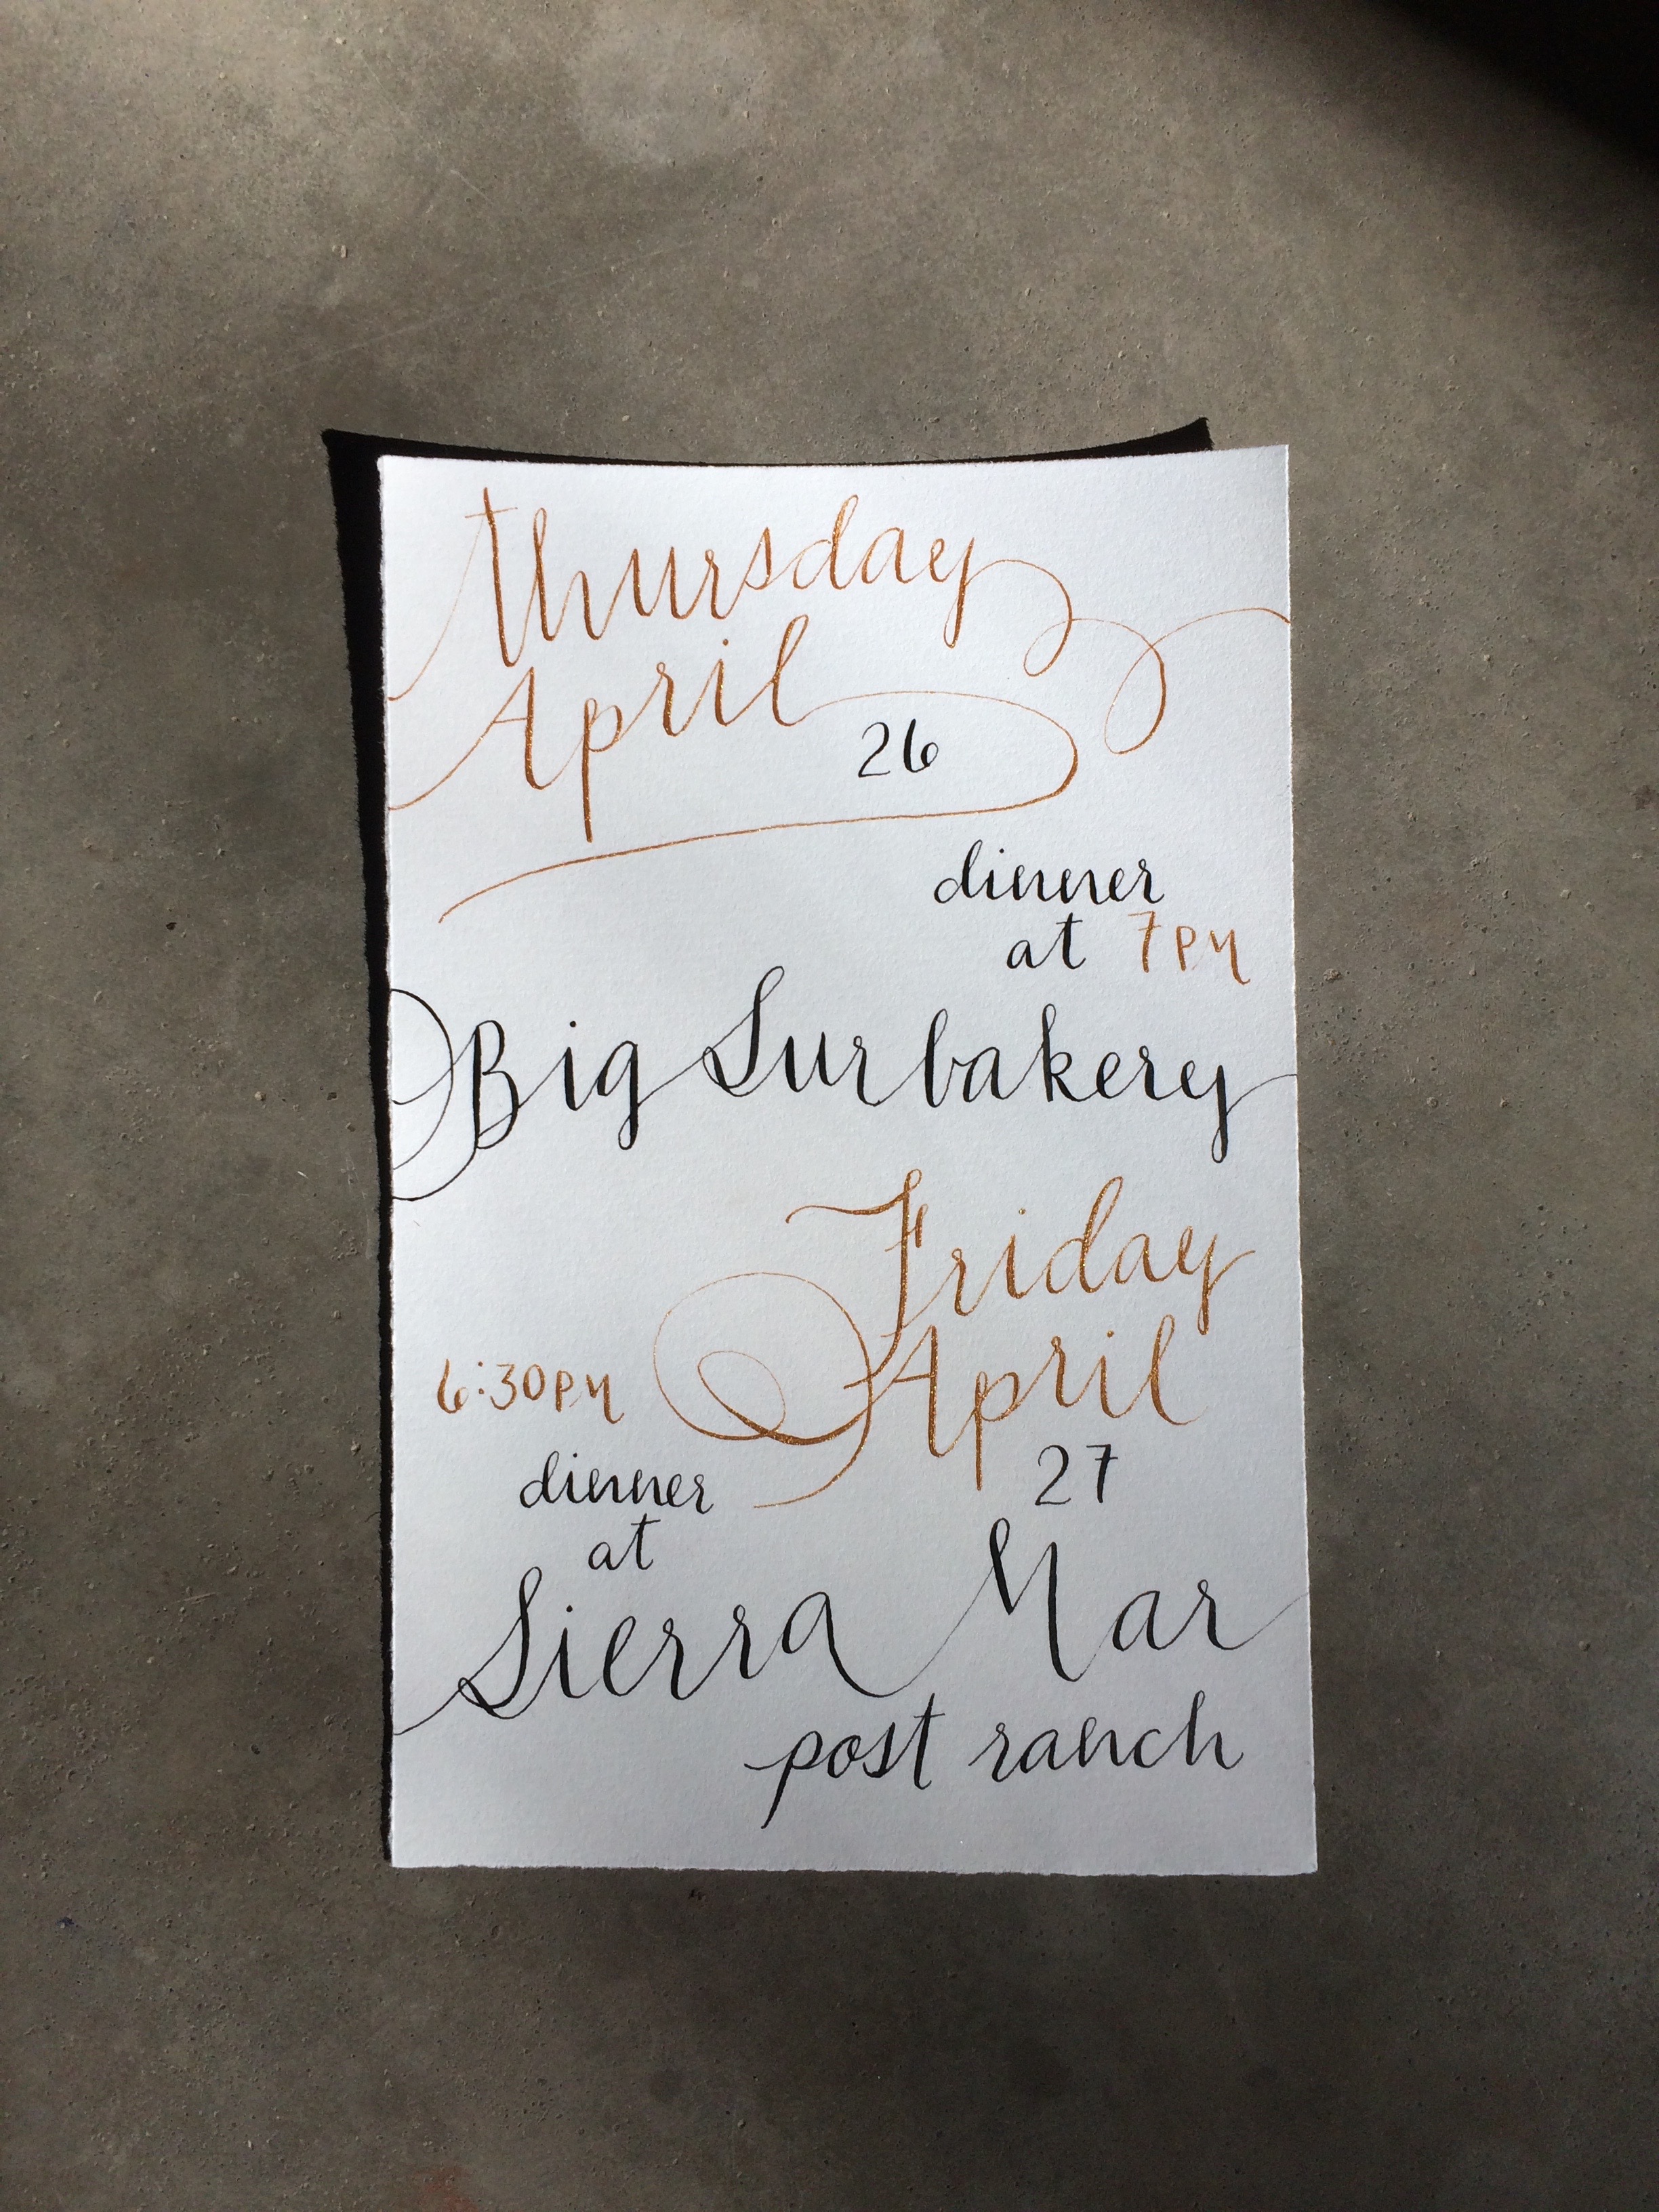 Thursday
April
26
dinner
at 7PM
Big Sur bakery
Friday
April
27
6:30PM
dinner
at
Sierra Mar
post ranch